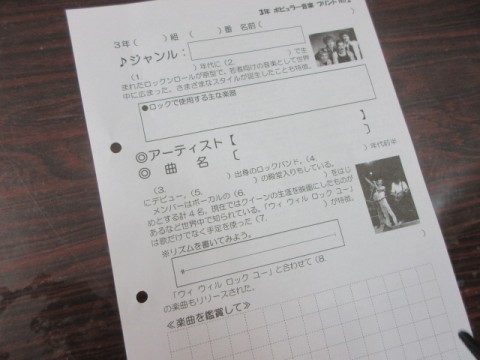 3年 ポピュラー音楽 プリント
3年(　　)組　(　　)番　名前(
♪ジャンル：
(1.　　　　)年代に(2.　　　　)で生
まれたロックンロールが原型で、若者向けの音楽として世界
中に広まった。さまざまなスタイルが誕生したことも特徴。
●ロックで使用する主な楽器
◎アーティスト【　　　　】
◎　曲　名　〔　　　　〕
(3.　　　　)出身のロックバンド。(4.　　　　)年代前半
にデビュー。(5.　　　　)の殿堂入りもしている。
メンバーはボーカルの(6.　　　　)をは
めとする計4名。現在ではクイーンの生涯を映画にしたものが
あるなど世界中で知られている。「ウィ ウィル ロック ユー」
は歌だけでなく手足を使った(7.　　　　)が特徴。
※リズムを書いてみよう。
「ウィ ウィル ロック ユー」と合わせて(8.
の楽曲もリリースされた。
≪楽曲を鑑賞して≫